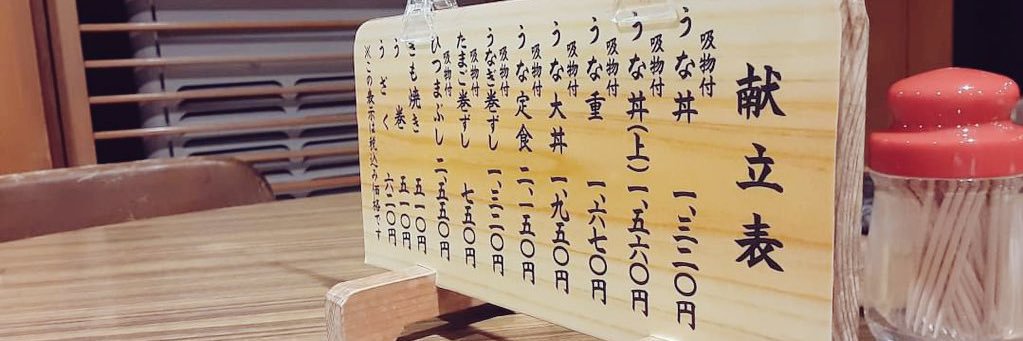 献立表
吸物付
うな丼 一、三二〇円
吸物付
うな丼(上) 一、五六〇円
吸物付
うな重 一、六七〇円
吸物付
うな大丼 一、九五〇円
吸物付
うな定食 二、一五〇円
吸物付
うなぎ巻ずし 一、三二〇円
吸物付
たまご巻ずし 七五〇円
吸物付
ひつまぶし 二、五五〇円
きも焼き 五一〇円
う巻 五一〇円
うざく 六二〇円
※この表示は税込み価格です